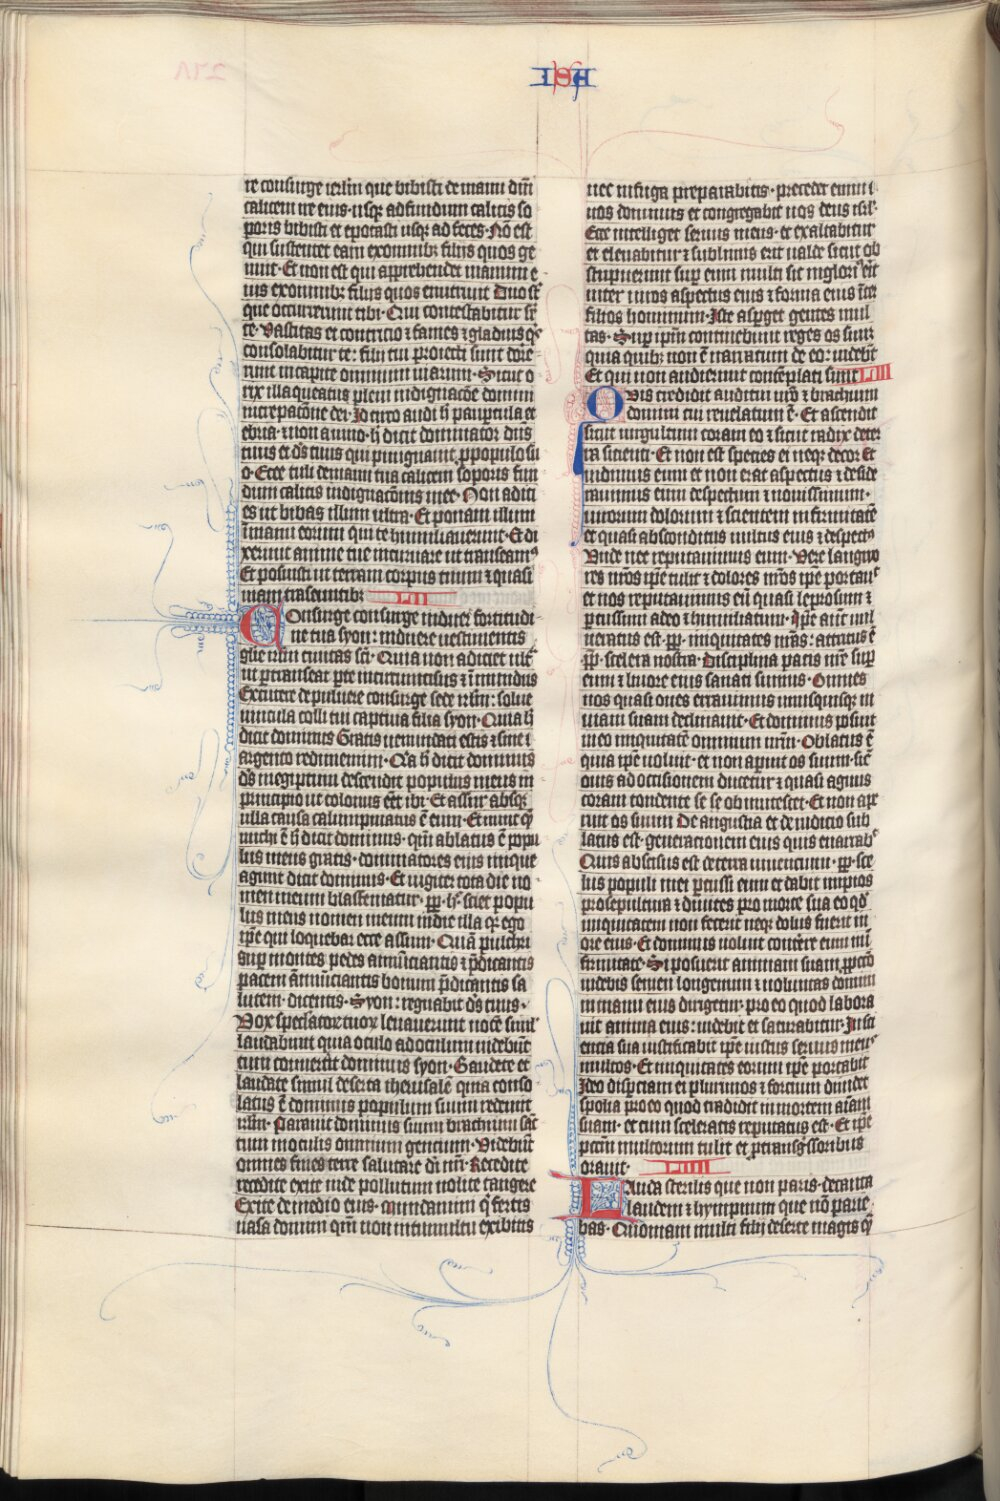 ISA
re consurge ierlm̄ que bibisti de manu dn̄i
calicem ire eius usq; ad fundum calicis so
poris bibisti et epotasti usq; ad feces· Nō est
qui sustentet eam ex omnib; filijs quos ge
nuit· Et non est qui apprehendat manum e
ius ex omnib; filijs quos enutriuit Duo sūt
que occurrerunt tibi· Quis contristabitur sr̄
te· Vastitas et contricio ⁊ fames ⁊ gladius q̄s
consolabitur te: filij tui proiecti sunt dor̄
runt in capite omnium uiarum· Sicut o
rix illaqueatus pleni indignacōe domini
increpacōne dei· Idcirco audi h̄ paupercula et
ebria· ⁊ non a uino· h̄ dicit dominator dn̄s
tuus et ds̄ tuus qui pugnauit p̄ populo su
o· Ecce tuli de manu tua calicem soporis fun
dum calicis indignacōnis mee· Non adici
es ut bibas illum ultra· Et ponam illum
ī manu eorum qui te humiliauerunt· Et di
xerunt anime tue incuruare ut transeam⁹
Et posuisti ut terram corpus tuum ⁊ quasi
uiam transeuntib; LII
Consurge consurge induere fortitudi
ne tua syon: induere uestimentis
glīe irlm̄ ciuitas sc̄i· Quia non adiciet ultͣ
ut ꝑtranseat ꝑ te incircuncisus ⁊ īmundus
Excutere de puluere consurge sede irlm̄: solue
uincula colli tui captiua filia syon· Quia h̄
dicit dominus Gratis uenundati estis ⁊ sine i
argento redimemini· Qͥa h̄ dicit dominus
ds̄ in egiptum descendit populus meus in
principio ut colonus eēt ibi· Et assur absq;
ulla causa calumpniatus ē eum· Et nunc qͥ
michi ē h̄ dicit dominus· qn̄m ablatus ē popu
lus meus gratis· dominatores eius inique
agunt dicit dominus· Et iugiter tota die no
men meum blasfematur· ꝓp̄· h̄· sciet popu
lus meus nomen meum in die illa q; ego
ip̄e qui loquebar ecce assum· Quā pulchri
sup̄ montes pedes annūciantis ⁊ p̄dicantis
pacem annūciantis bonum p̄dicantis sa
lutem· dicentis· Syon: regnabit ds̄ tuus·
Vox speclatoꝝ tuoꝝ leuauerunt uocē simul
laudabunt quia oculo ad oculum uidebūt
cum conuertit dominus syon· Gaudete et
laudate simul deserta iherusalē quia conso
latus ē dominus populum suum redemit
irlm̄· Parauit dominus suum brachium sāc
tum in oculis omnium gentium· Videbūt
omnes fines terre salutare dī nr̄i· Recedite
recedite exite inde pollutum nolite tangere
Exite de medio eius· mundamini qͥ fertis
uasa domini qn̄m non in tumultu exibitis
nec in fuga preparabitis· precedet enim i
uos dominus et congregabit uos deus isrl·
Ecce intelliget seruus meus· et exaltabitur
et eleuabitur ⁊ sublimis erit ualde sicut ob
stupuerunt sup̄ eum multi sic inglori⁹ erit
inter uiros aspectus eius ⁊ forma eius īter
filios hominum· Iste asꝑget gentes mul
tas· Sup̄ ip̄m continebunt reges os suum
quia quib; non ē narratum de eo: uidebūt
Et qui non audierunt contēplati sunt LIII
Quis credidit auditui nr̄o ⁊ brachium
domini cui reuelatum ē· Et ascendit
sicut uirgultum coram eo ⁊ sicut radix de ter
ra sicienti· Et non est species ei neq; decor Et
uidimus eum et non erat aspectus ⁊ deside
rauimus eum despectum ⁊ nouissimum·
uirorum dolorum ⁊ scientem infirmitatē
et quasi absconditus uultus eius ⁊ despect⁹
Vnde nec reputauimus eum· Vere languo
res nr̄os ip̄e tulit ⁊ dolores nr̄os ip̄e portau
et nos reputauimus eū quasi leprosum ⁊
ꝑcussum a deo ⁊ humiliatum· Ip̄e aūt uul
neratus est· ꝓp̄· iniquitates nr̄as: attritus ē
ꝓp̄· scelera nostra· Disciplina pacis nr̄e sup̄
eum ⁊ liuore eius sanati sumus· Omnes
nos quasi oues errauimus unusquisq; in
uiam suam declinauit· Et dominus posuit
in eo iniquitatē omnium nr̄m· Oblatus ē
quia ip̄e uoluit· et non aperuit os suum· sic̄
ouis ad occisionem ducetur ⁊ quasi agnus
coram tondente se se obmutescet· Et non ape
riet os suum De angustia et de iudicio sub
latus est· generationem eius quis enarrab
Quia abscisus est de terra uiuencium· ꝓp̄· sce
lus populi mei ꝑcussi eum et dabit impios
pro sepultura ⁊ diuites pro morte sua eo qd̄
iniquitatem non fecerit neq; dolus fuerit in
ore eius· Et dominus uoluit conterere eum in
firmitate· Si posuerit animam suam ꝓ pcc̄o
uidebit semen longeuum ⁊ uoluntas domini
in manu eius dirigetur· pro eo quod labora
uit anima eius: uidebit et saturabitur· In sci
entia sua iustificabit ip̄e iustus seruus meus
multos· Et iniquitates eorum ip̄e portabit
Ideo disꝑtiam ei plurimos ⁊ fortium diuidet
spolia pro eo quod tradidit in mortem aīam
suam· et cum sceleratis reputatus est· Et ip̄e
pctm̄ multorum tulit et ꝑ transgͥssoribus
orauit· LIIII
Lauda sterilis que non paris· decanta
laudem ⁊ hympnum que nō parie
bas· Quoniam multi filij deserte magis qͣ